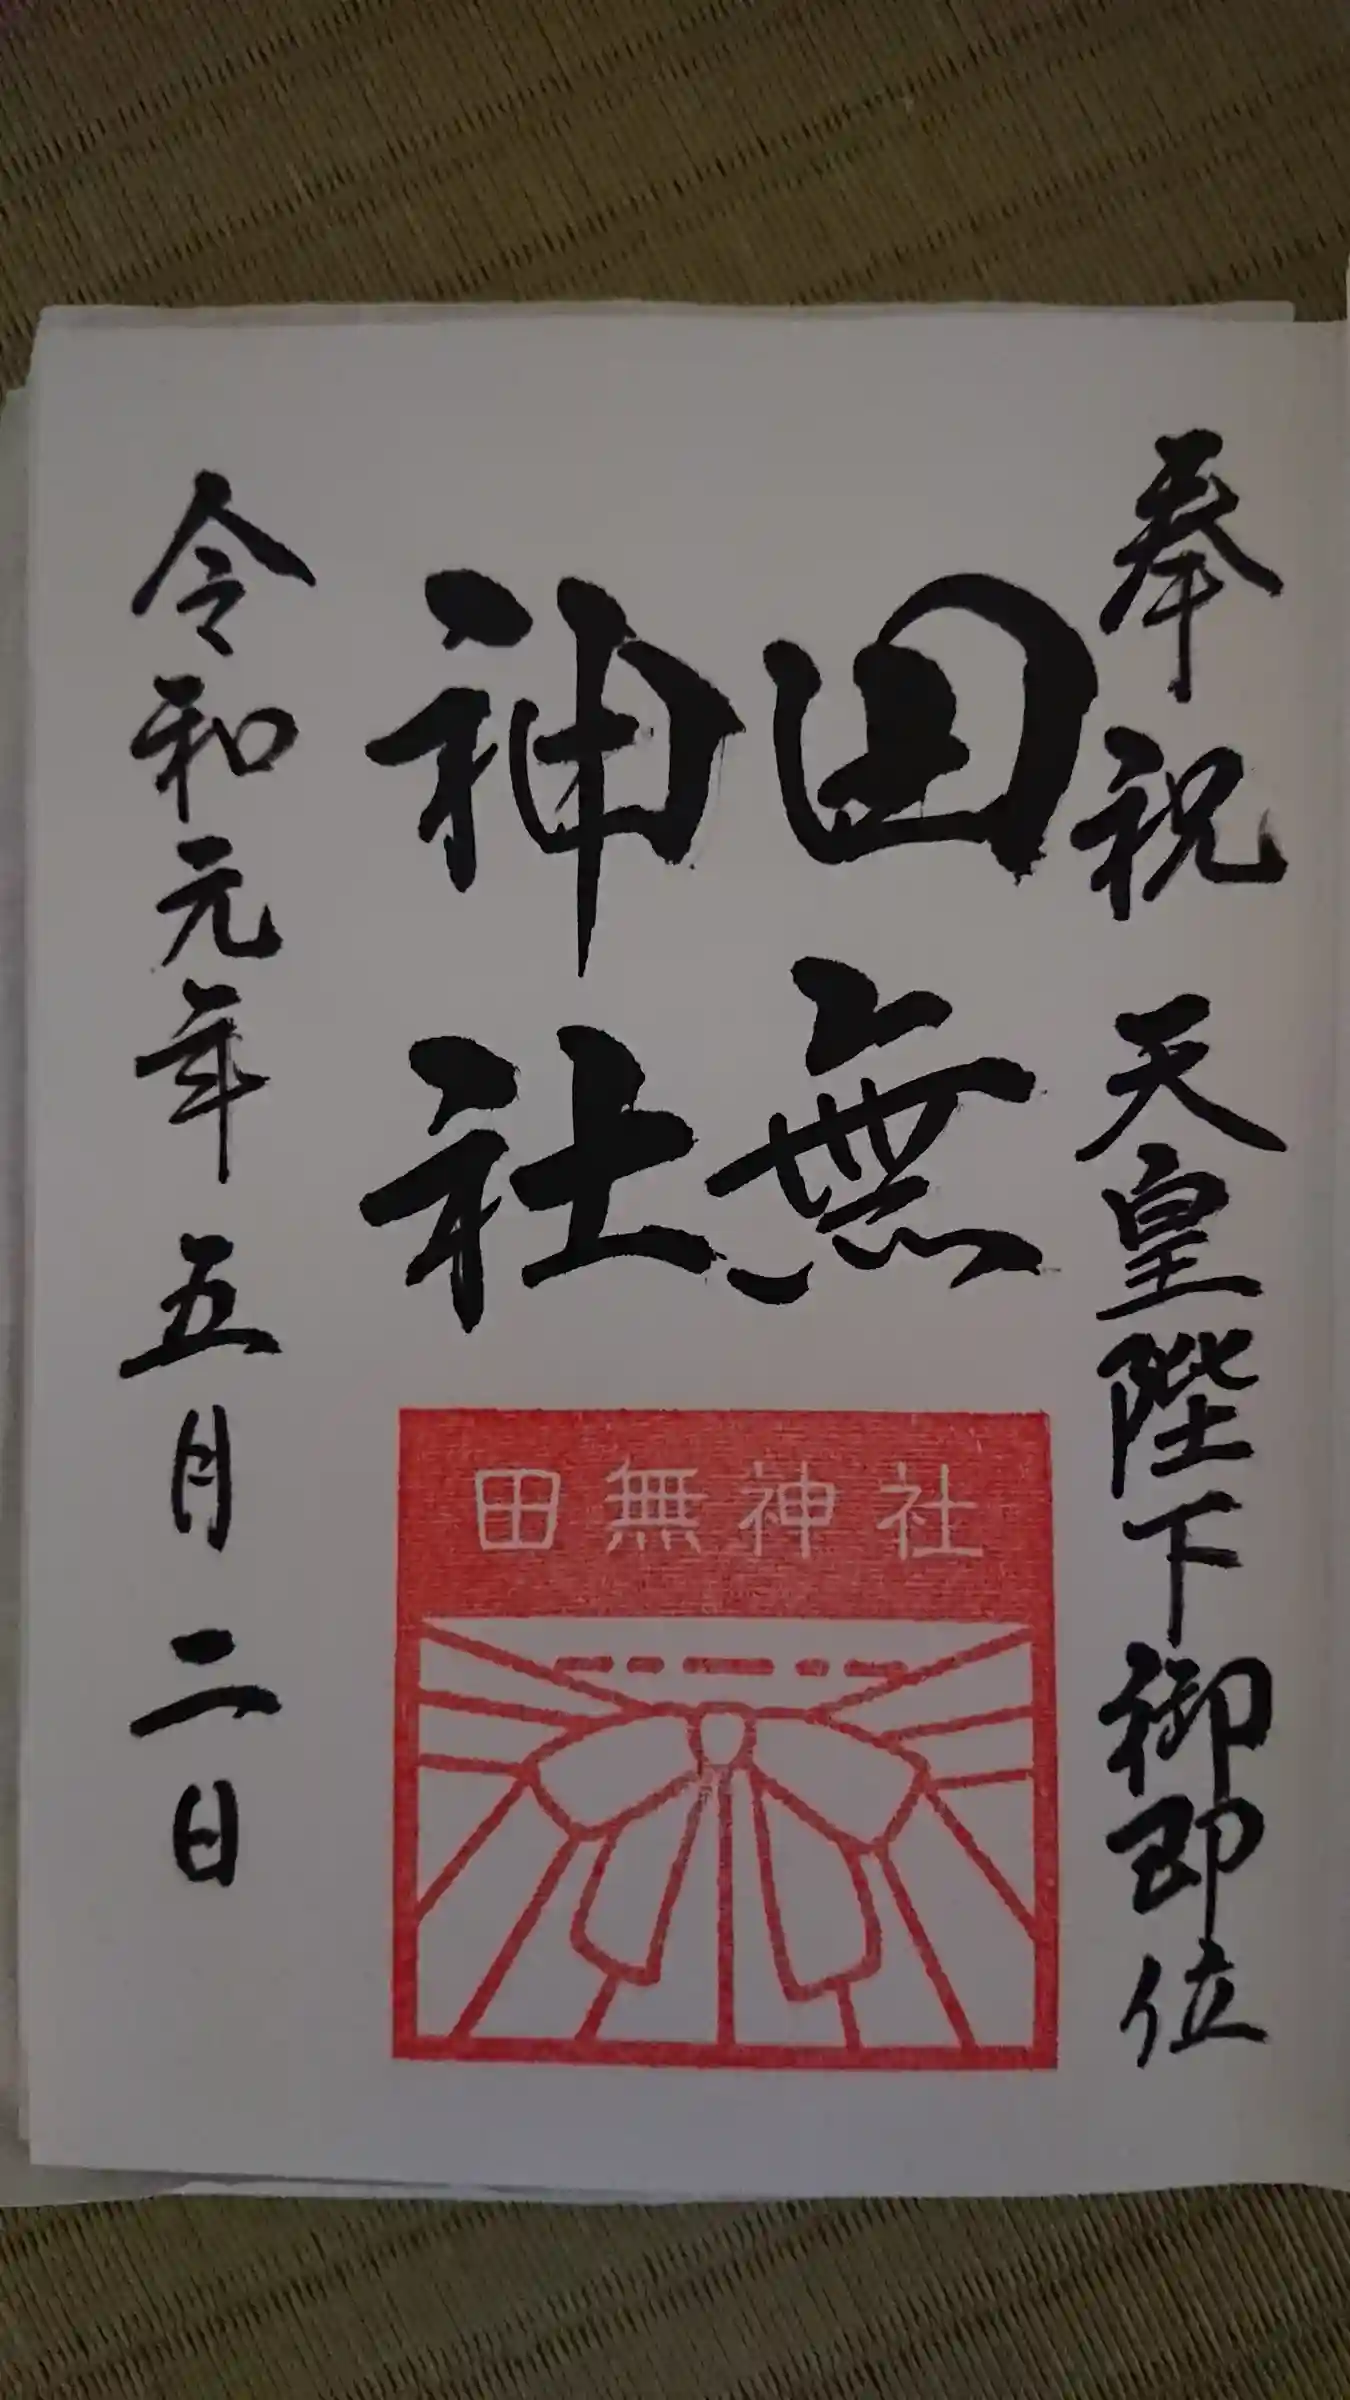 奉祝 天皇陛下御即位
田無
神社
令和元年 五月 二日
田無神社